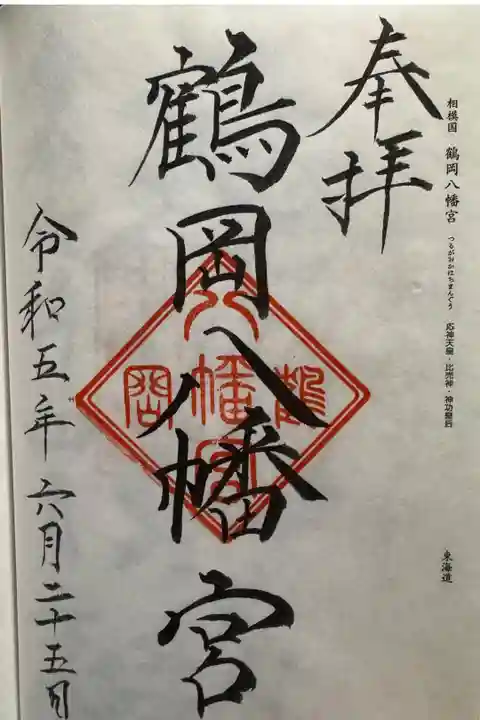 相模国 鶴岡八幡宮 つるがおかはちまんぐう 応神天皇・比売神・神功皇后 東海道
奉拝
鶴岡八幡宮
鶴岡八幡宮
令和五年六月二十五日